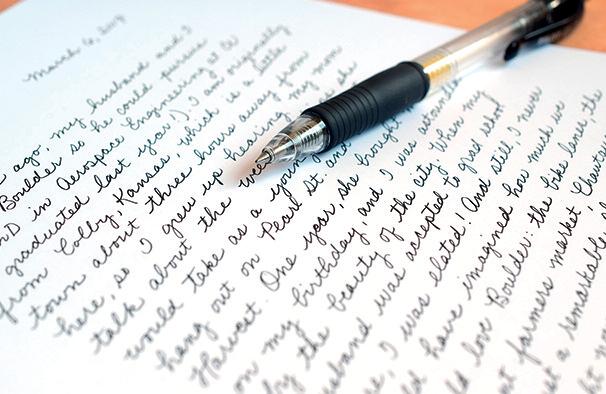 March 6, 2019
ago, my husband and I
Boulder so he could pursue
PhD in Aerospace Engineering at CU
graduated last year!) I am originally
from Colby, Kansas, which is a little
town about three hours away from
here, so I grew up hearing my mom
talk about the weekend she
would take as a young
hang out on Pearl St. and
Harvest. One year, she brought
on my birthday, and I was astounded
by the beauty of the city. When my
husband was accepted to grad school
I was elated! And still, I never
have imagined how much we
love Boulder: the bike lanes, the
farmers market
a remarkable